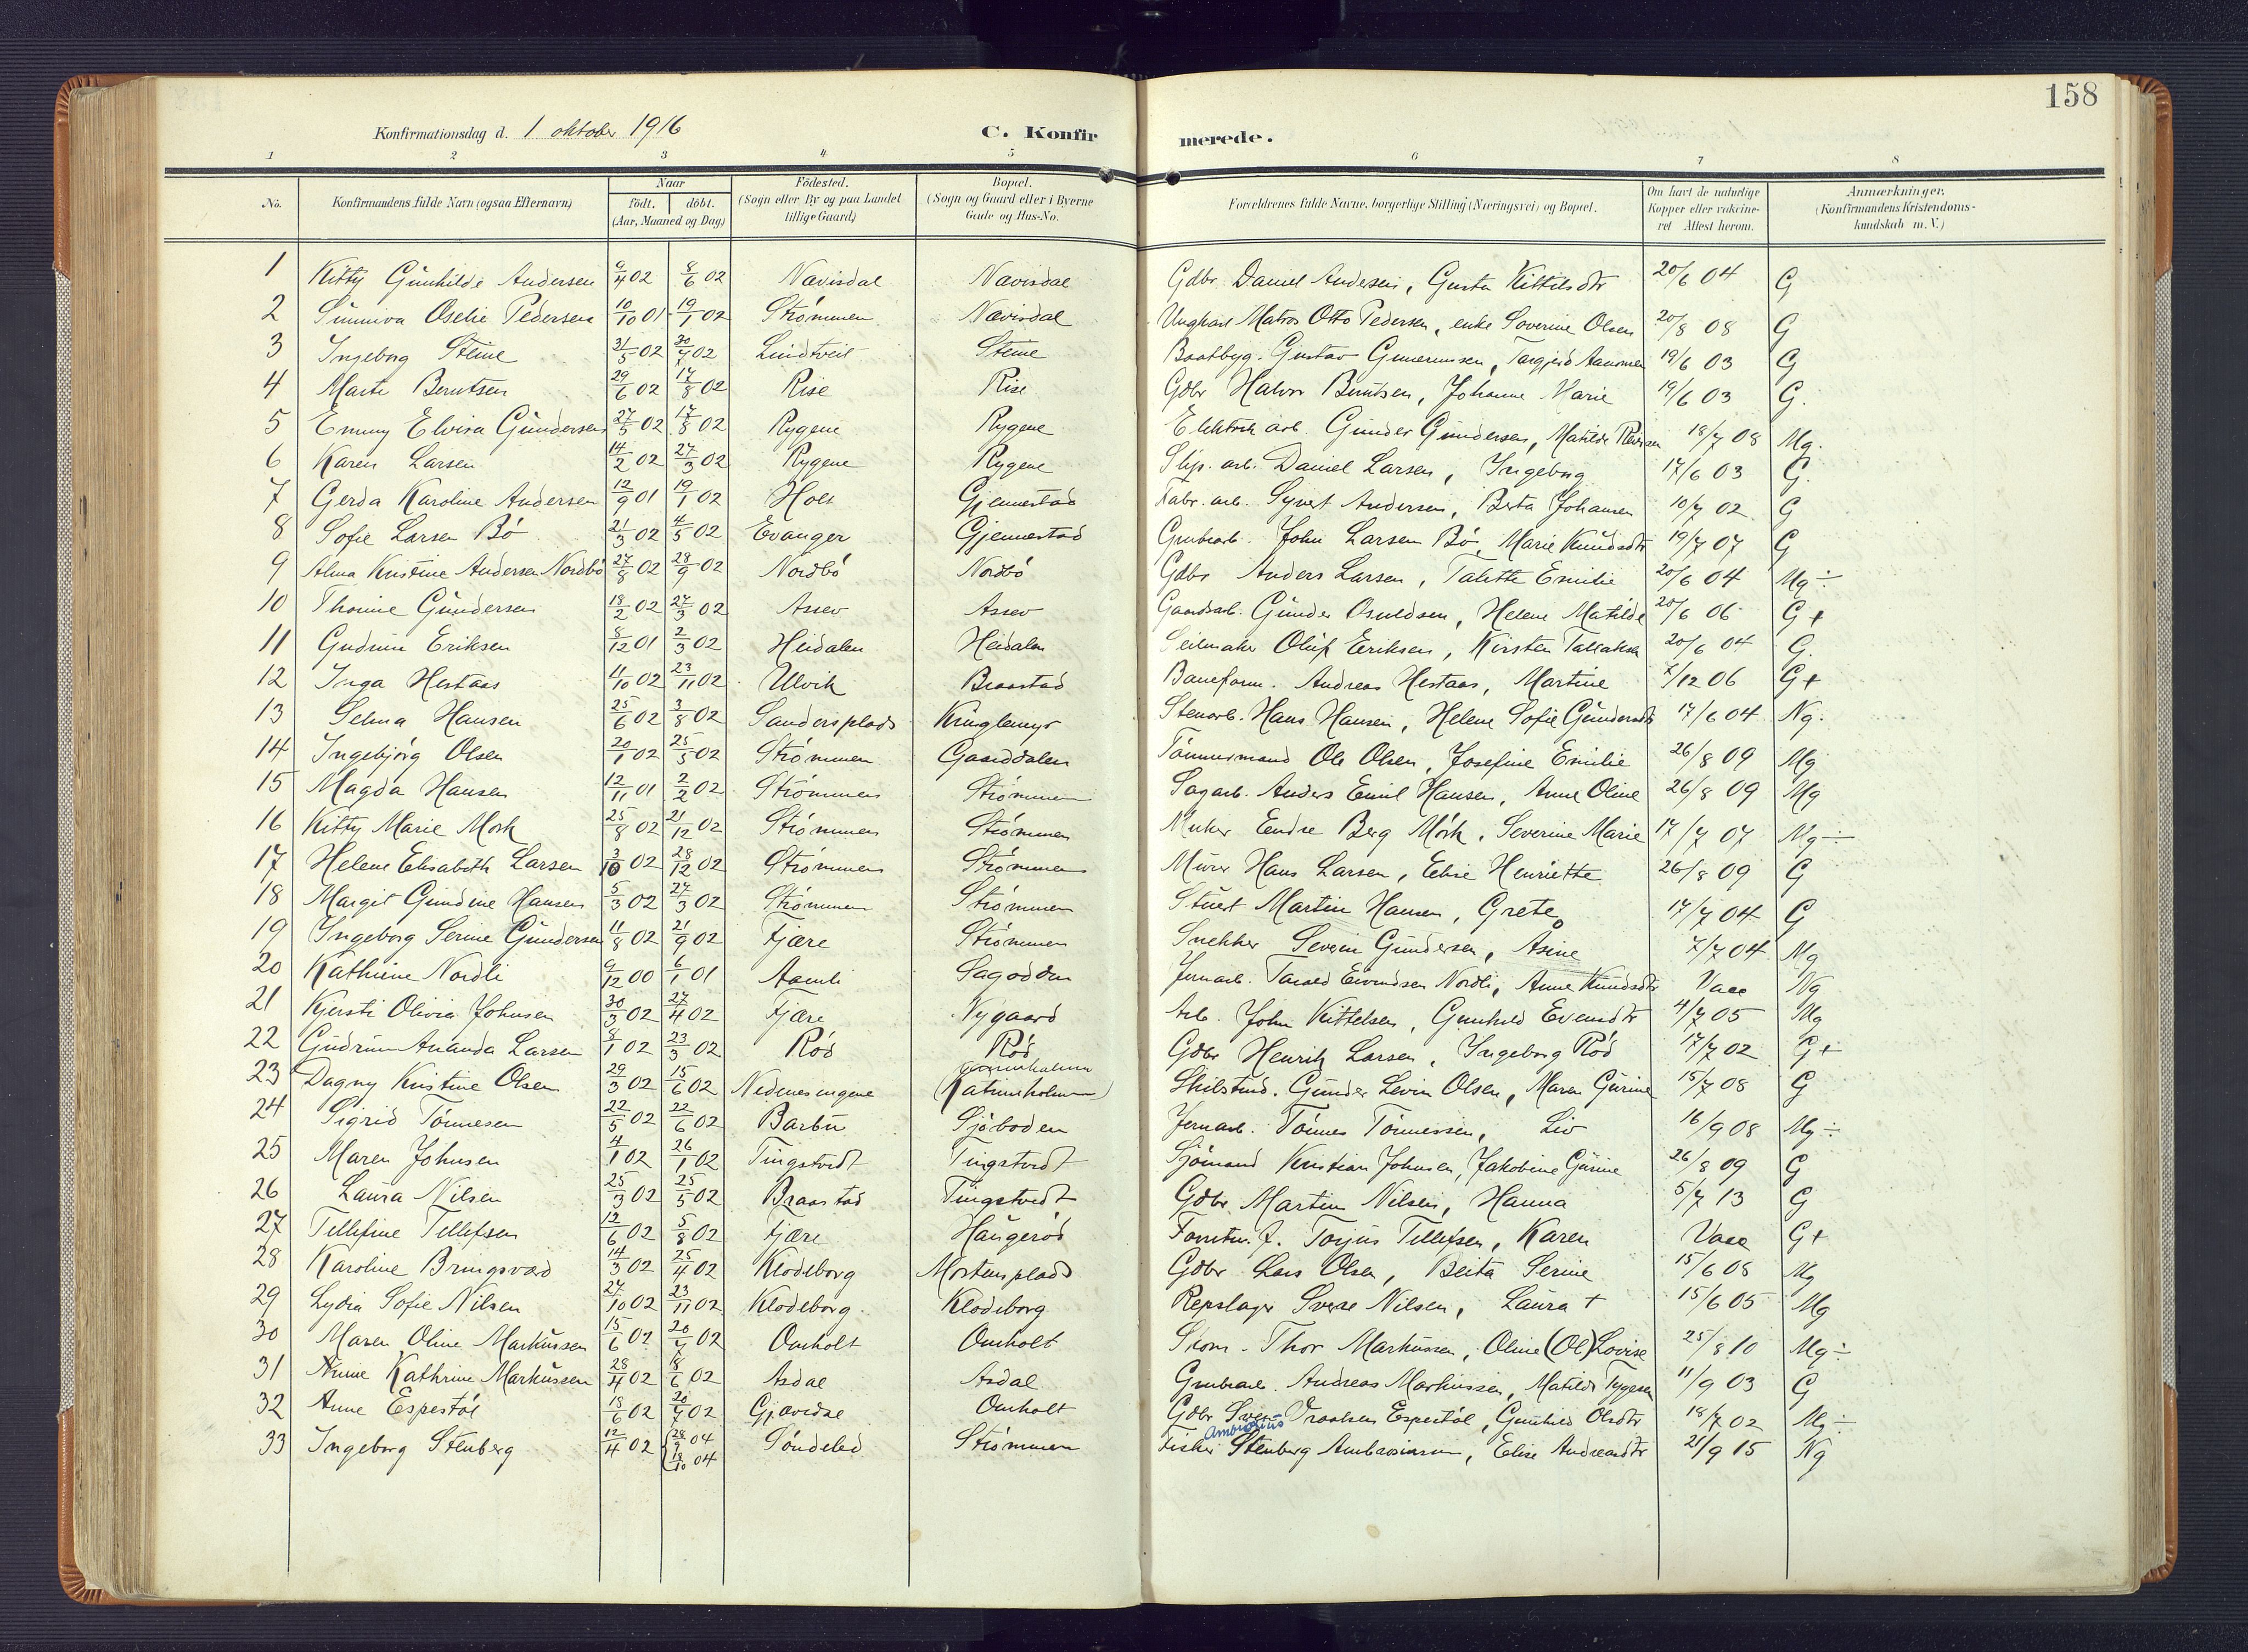 158
Konfirmationsdag d. 1 oktober 1916 C. Konfirmerede.
1 2 3 4 5 6 7 8
No. Konfirmandens fulde Navn (ogsaa Efternavn) Naar født. døbt. (Aar, Maaned og Dag) Födested. (Sogn eller By og paa Landet tillige Gaard) Bopæl. (Sogn og Gaard eller i Byerne Gade og Hus-No. Forældrenes fulde Navne, borgerlige Stilling (Næringsvei) og Bopæl. Om havt de naturlige Kopper eller vakcineret Attest herom. Anmærkninger. (Konfirmandens Kristendomskundskab m. V.)
1 Kitty Gunhilde Andersen 9/4 02 8/6 02 Nævisdal Nævisdal Gdbr. Daniel Andersen, Gusta Kittilsdtr 20/6 04 G
2 Sunniva Oselie Pedersen 10/10 01 19/1 02 Strømmen Nævisdal Ungkarl Matros Otto Pedersen, enke Severine Olsen 20/8 08 G
3 Ingeborg Stene 31/5 02 30/7 02 Lindtveit Stene Baatbyg. Gustav Gunerussen, Targjerd Aanonsen 19/6 03 G
4 Marte Berntsen 29/6 02 17/8 02 Rise Rise Gdbr Halvor Berntsen, Johanne Marie 19/6 03 G.
5 Emmy Elvira Gundersen 27/5 02 17/8 02 Rygene Rygene Elektrisk arb. Gunder Gundersen, Matilde 18/7 08 Mg.
6 Karen Larsen 14/2 02 27/3 02 Rygene Rygene Slip. arb. Daniel Larsen, Ingeborg 17/6 03 G.
7 Gerda Karoline Andersen 12/9 01 19/1 02 Holt Gjennestad Fabr. arb. Syvert Andersen, Berta Johansen 10/7 02 G
8 Sofie Larsen Bö 21/3 02 4/5 02 Evanger Gjennestad Grubearb. John Larsen Bö, Marie Knudsdtr 19/7 07 G
9 Alma Kristine Andersen Nordbö 27/8 02 28/9 02 Nordbö Nordbö Gdbr Anders Larsen, Talette Emilie 20/6 04 Mg÷
10 Thomine Gundersen 18/2 02 27/3 02 Assev Assev Gaardsarb. Gunder Osuldsen, Helene Matilde 20/6 06 G+
11 Gudrun Eriksen 8/12 01 2/3 02 Heidalen Heidalen Seilmaker Oluf Eriksen, Kirsten Tallaksen 20/6 04 G.
12 Inga Hestaas 11/10 02 23/11 02 Ulvik Braastad Baneform. Andreas Hestaas, Martine 7/12 06 G+
13 Selma Hansen 25/6 02 3/8 02 Sandersplads Kringlemyr Stenarb. Hans Hansen, Helene Sofie Gundersdtr 17/6 04 Ng.
14 Ingebjörg Olsen 20/1 02 25/5 02 Strömmen Gaarddalen Tömmermand Ole Olsen, Josefine Emilie 26/8 09 Mg
15 Magda Hansen 12/11 01 2/2 02 Strömmen Strömmen Sagarb. Anders Emil Hansen, Anne Oline 26/8 09 Mg
16 Kitty Marie Mork 25/8 02 21/12 02 Strömmen Strömmen Endre Berg Mörk, Severine Marie 17/7 07 Mg÷
17 Helene Elisabeth Larsen 3/10 02 28/12 02 Strömmen Strömmen Murer Hans Larsen, Elise Henriette 26/8 09 G
18 Margit Gundine Hansen 5/3 02 27/3 02 Strömmen Strömmen Stuert Martin Hansen, Grete 17/7 04 G
19 Ingeborg Serine Gundersen 11/8 02 21/9 02 Fjære Strömmen Snekker Severin Gundersen, Åsine 7/7 04 Mg
20 Kathrine Nordli 9/12 00 6/1 01 Aamli Sagodden Jernarb. Tarald Eivindsen Nordli, Anne Knudsdtr Vacc Ng
21 Kjersti Olivia Johnsen 30/3 02 27/4 02 Fjære Nygaard Arb. John Kittelsen, Gunhild Evensdtr 4/7 05 Mg
22 Gudrun Ananda Larsen 8/1 02 23/3 02 Röd Röd Gdbr Henrik Larsen, Ingeborg Röd 17/7 02 G+
23 Dagny Kristine Olsen 29/3 02 15/6 02 Nedenesengene (Katrineholmen) Gunder Levin Olsen, Maren Gurine 15/7 08 G
24 Sigrid Tönnesen 22/5 02 22/6 02 Barbu Sjöboden Jernarb. Tönnes Tönnessen, Liv 16/9 08 Mg÷
25 Maren Johnsen 4/1 02 26/1 02 Tingstvedt Tingstvedt Sjömand Kristian Johnsen, Jakobine Gurine 26/8 09 G
26 Laura Nilsen 25/3 02 25/5 02 Braastad Tingstvedt Gdbr. Martin Nilsen, Hanna 5/7 13 G
27 Tellefine Tellefsen 12/6 02 5/8 02 Fjære Haugeröd Torjus Tellefsen, Karen Vacc G+
28 Karoline Bringsværd 14/3 02 25/4 02 Klodeborg Mortensplads Gdbr Lars Olsen, Berta Serine 15/6 08 Mg
29 Lydia Sofie Nilsen 27/10 02 23/11 02 Klodeborg. Klodeborg Repslager Sverre Nilsen, Laura + 15/6 05 Mg
30 Maren Oline Markussen 15/6 02 20/7 02 Omholt Omholt Skom. Thor Markussen, Oline (Ol) Lovise 25/8 10 Mg÷
31 Anne Kathrine Markussen 28/4 02 18/6 02 Asdal Asdal Grubearb. Andreas Markussen, Matilde Tygesen 11/9 03 G
32 Anne Espestöl 18/6 02 20/7 02 Gjævdal Omholt Gdbr Sven Vraalsen Espestöl, Gunhild Olsdtr 18/7 02 Mg÷
Ambrosius
33 Ingeborg Stenberg 12/4 02 28/9 04 18/10 04 Söndeled Strömmen Fisker Stenberg Ambrosiussen, Elise Andreasdtr 21/9 15 Ng